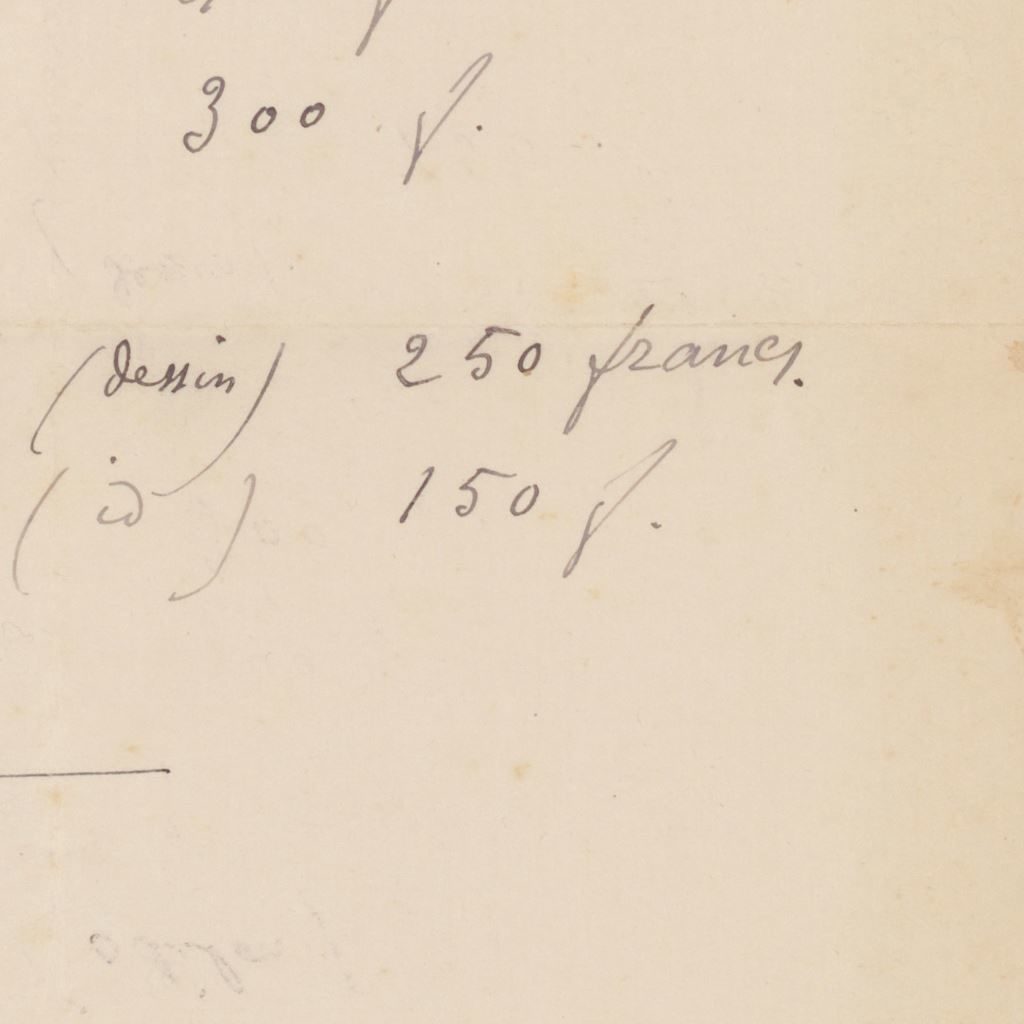 300 f.
(dessin) 250 francs.
(id) 150 f.